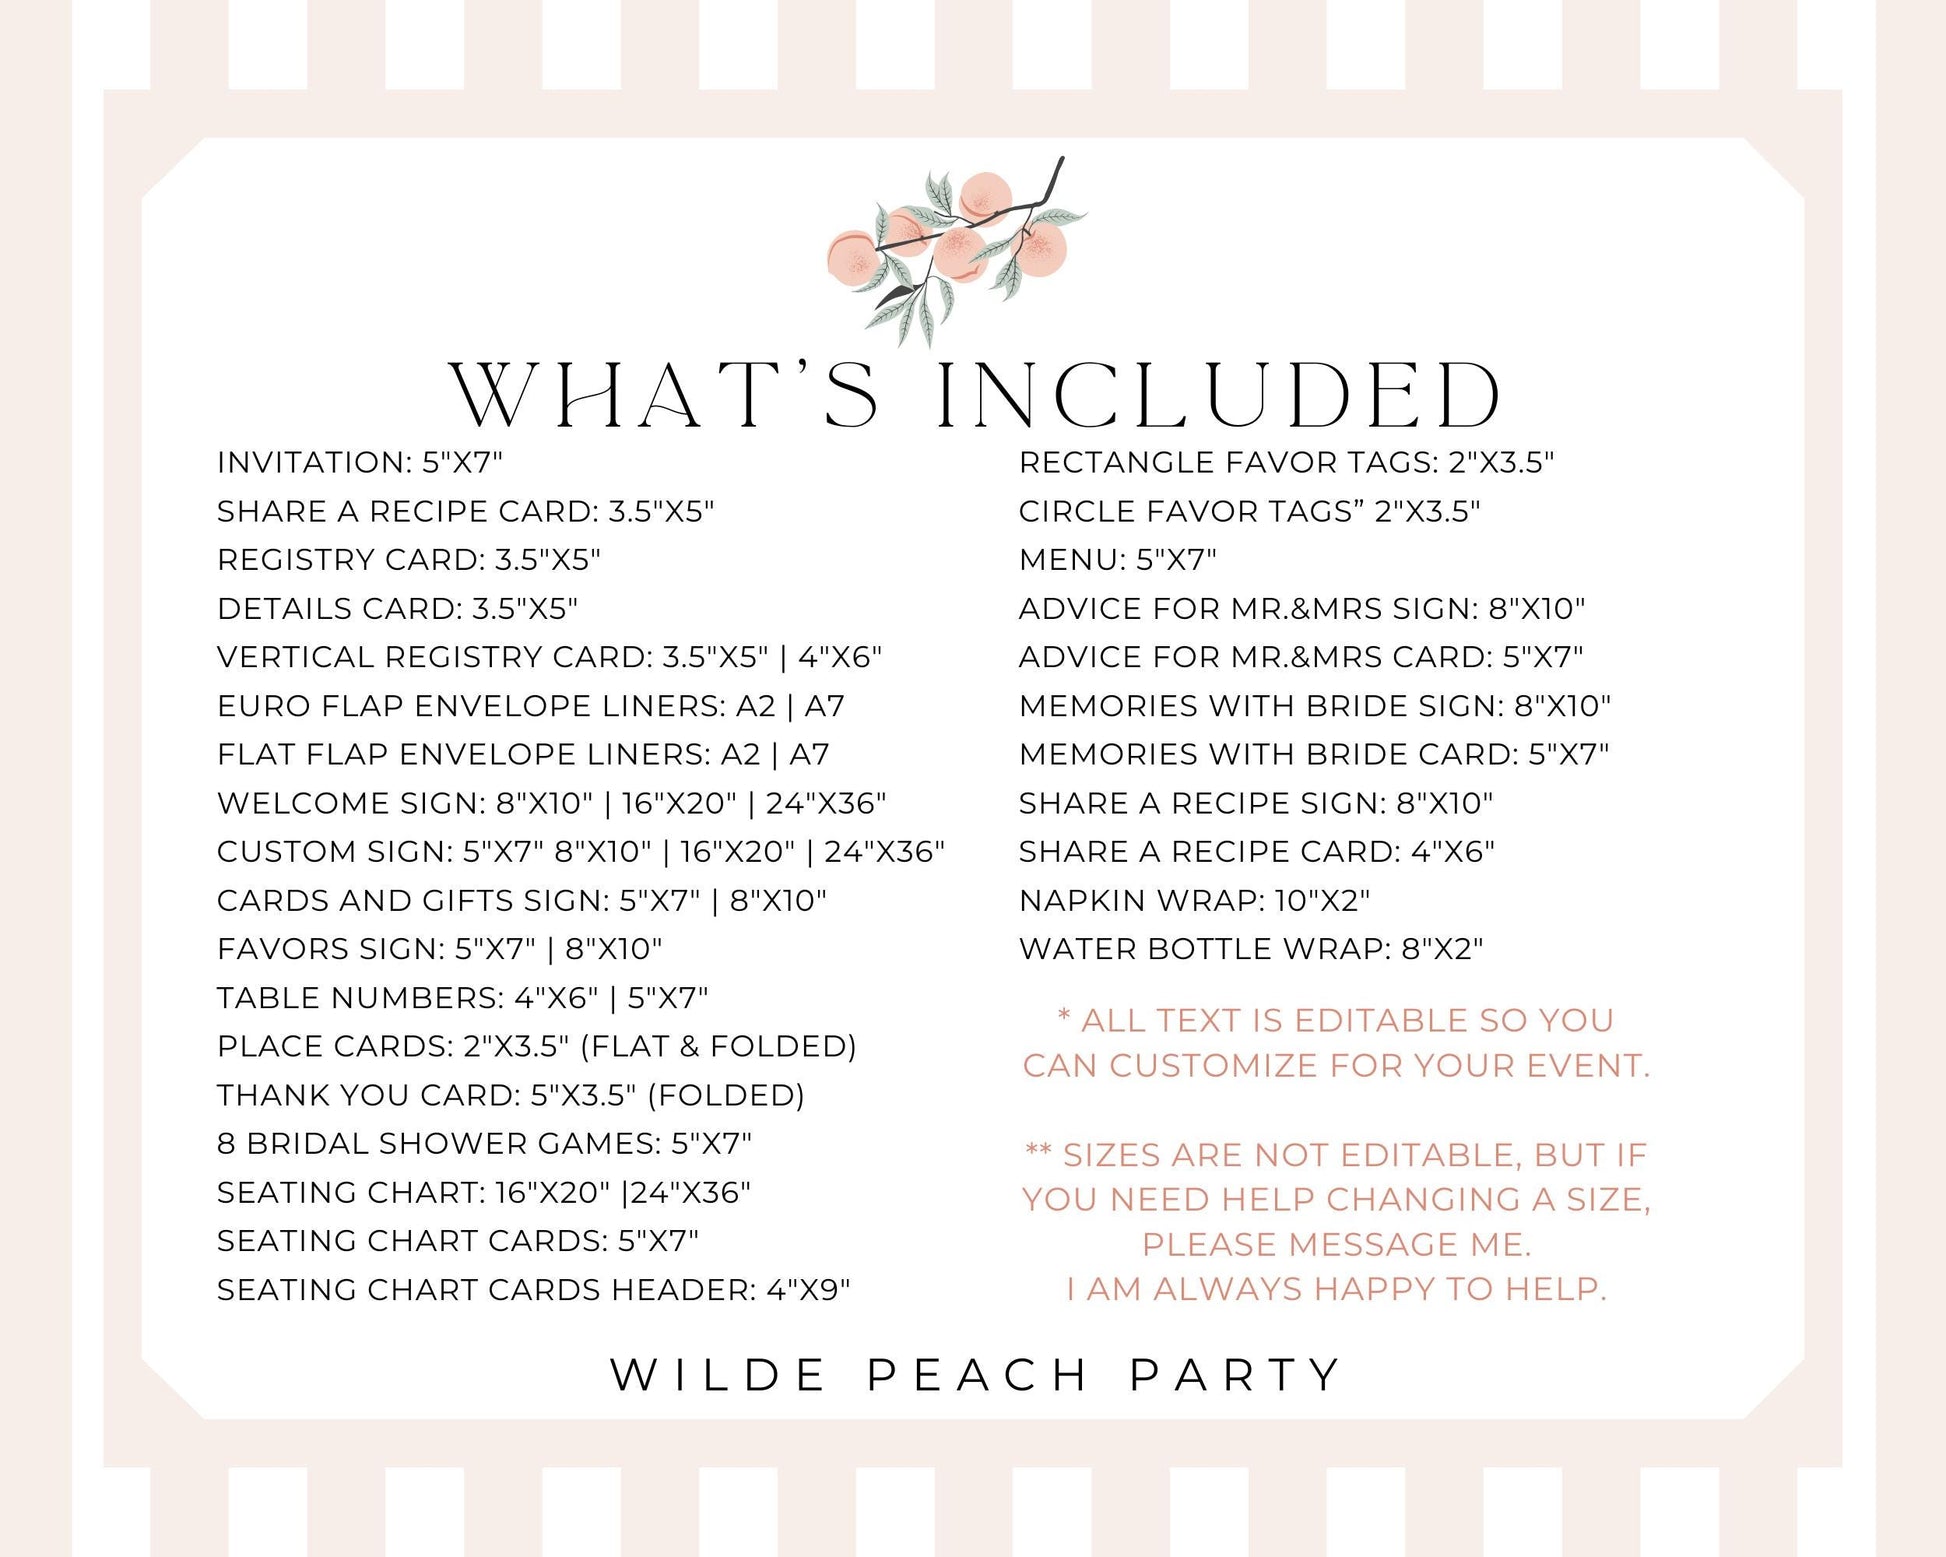 WHAT'S INCLUDED
INVITATION: 5"X7"
SHARE A RECIPE CARD: 3.5"X5"
REGISTRY CARD: 3.5"X5"
DETAILS CARD: 3.5"X5"
VERTICAL REGISTRY CARD: 3.5"X5" | 4"X6"
EURO FLAP ENVELOPE LINERS: A2 | A7
FLAT FLAP ENVELOPE LINERS: A2 | A7
WELCOME SIGN: 8"X10" | 16"X20" | 24"X36"
CUSTOM SIGN: 5"X7" 8"X10" | 16"X20" | 24"X36"
CARDS AND GIFTS SIGN: 5"X7" | 8"X10"
FAVORS SIGN: 5"X7" | 8"X10"
TABLE NUMBERS: 4"X6" | 5"X7"
PLACE CARDS: 2"X3.5" (FLAT & FOLDED)
THANK YOU CARD: 5"X3.5" (FOLDED)
8 BRIDAL SHOWER GAMES: 5"X7"
SEATING CHART: 16"X20" |24"X36"
SEATING CHART CARDS: 5"X7"
SEATING CHART CARDS HEADER: 4"X9"
RECTANGLE FAVOR TAGS: 2"X3.5"
CIRCLE FAVOR TAGS” 2"X3.5"
MENU: 5"X7"
ADVICE FOR MR.&MRS SIGN: 8"X10"
ADVICE FOR MR.&MRS CARD: 5"X7"
MEMORIES WITH BRIDE SIGN: 8"X10"
MEMORIES WITH BRIDE CARD: 5"X7"
SHARE A RECIPE SIGN: 8"X10"
SHARE A RECIPE CARD: 4"X6"
NAPKIN WRAP: 10"X2"
WATER BOTTLE WRAP: 8"X2"
* ALL TEXT IS EDITABLE SO YOU
CAN CUSTOMIZE FOR YOUR EVENT.
** SIZES ARE NOT EDITABLE, BUT IF
YOU NEED HELP CHANGING A SIZE,
PLEASE MESSAGE ME.
I AM ALWAYS HAPPY TO HELP.
WILDE PEACH PARTY